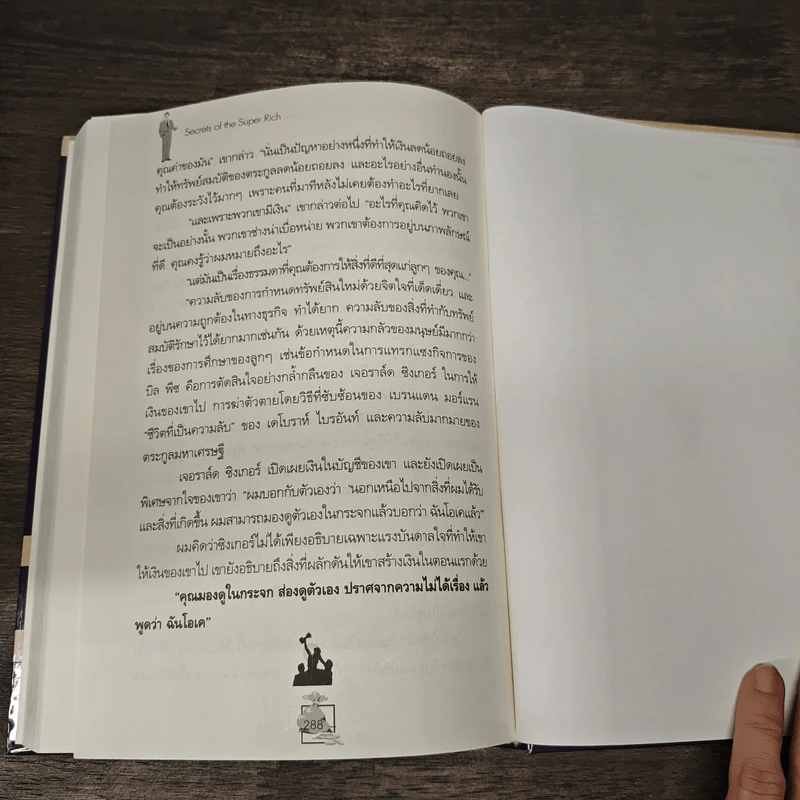 Secrets of the Super Rich
คุณค่าของมัน" เขากล่าว "นั่นเป็นปัญหาอย่างหนึ่งที่ทำให้เงินลดน้อยถอยลง
ทำให้ทรัพย์สมบัติของตระกูลลดน้อยถอยลง และอะไรอย่างอื่นทำนองนั้น
คุณต้องระวังไว้มากๆ เพราะคนที่มาทีหลังไม่เคยต้องทำอะไรที่ยากเลย
"และเพราะพวกเขามีเงิน" เขากล่าวต่อไป "อะไรที่คุณคิดไว้ พวกเขา
จะเป็นอย่างนั้น พวกเขาช่างน่าเบื่อหน่าย พวกเขาต้องการอยู่บนภาพลักษณ์
ที่ดี คุณคงรู้ว่าผมหมายถึงอะไร"
"แต่มันเป็นเรื่องธรรมดาที่คุณต้องการให้สิ่งที่ดีที่สุดแก่ลูกๆ ของคุณ..."
"ความลับของการกำหนดทรัพย์สินใหม่ด้วยจิตใจที่เด็ดเดี่ยว และ
อยู่บนความถูกต้องในทางธุรกิจ ทำได้ยาก ความลับของสิ่งที่ทำกับทรัพย์
สมบัติรักษาไว้ได้ยากมากเช่นกัน ด้วยเหตุนี้ความกลัวของมนุษย์มีมากกว่า
เรื่องของการศึกษาของลูกๆ เช่นข้อกำหนดในการแทรกแซงกิจการของ
บิล พีช คือการตัดสินใจอย่างกล้ำกลืนของ เจอราล์ด ซิงเกอร์ ในการให้
เงินของเขาไป การฆ่าตัวตายโดยวิธีที่ซับซ้อนของ เบรนแดน มอร์แรน
"ชีวิตที่เป็นความลับ" ของ เดโบราห์ ไบรอันท์ และความลับมากมายของ
ตระกูลมหาเศรษฐี
เจอราล์ด ซิงเกอร์ เปิดเผยเงินในบัญชีของเขา และยังเปิดเผยเป็น
พิเศษจากใจของเขาว่า "ผมบอกกับตัวเองว่า 'นอกเหนือไปจากสิ่งที่ผมได้รับ
และสิ่งที่เกิดขึ้น ผมสามารถมองดูตัวเองในกระจกแล้วบอกว่า ฉันโอเคแล้ว"
ผมคิดว่าซิงเกอร์ไม่ได้เพียงอธิบายเฉพาะแรงบันดาลใจที่ทำให้เขา
ให้เงินของเขาไป เขายังอธิบายถึงสิ่งที่ผลักดันให้เขาสร้างเงินในตอนแรกด้วย
"คุณมองดูในกระจก ส่องดูตัวเอง ปราศจากความไม่ได้เรื่อง แล้ว
พูดว่า ฉันโอเค"
288